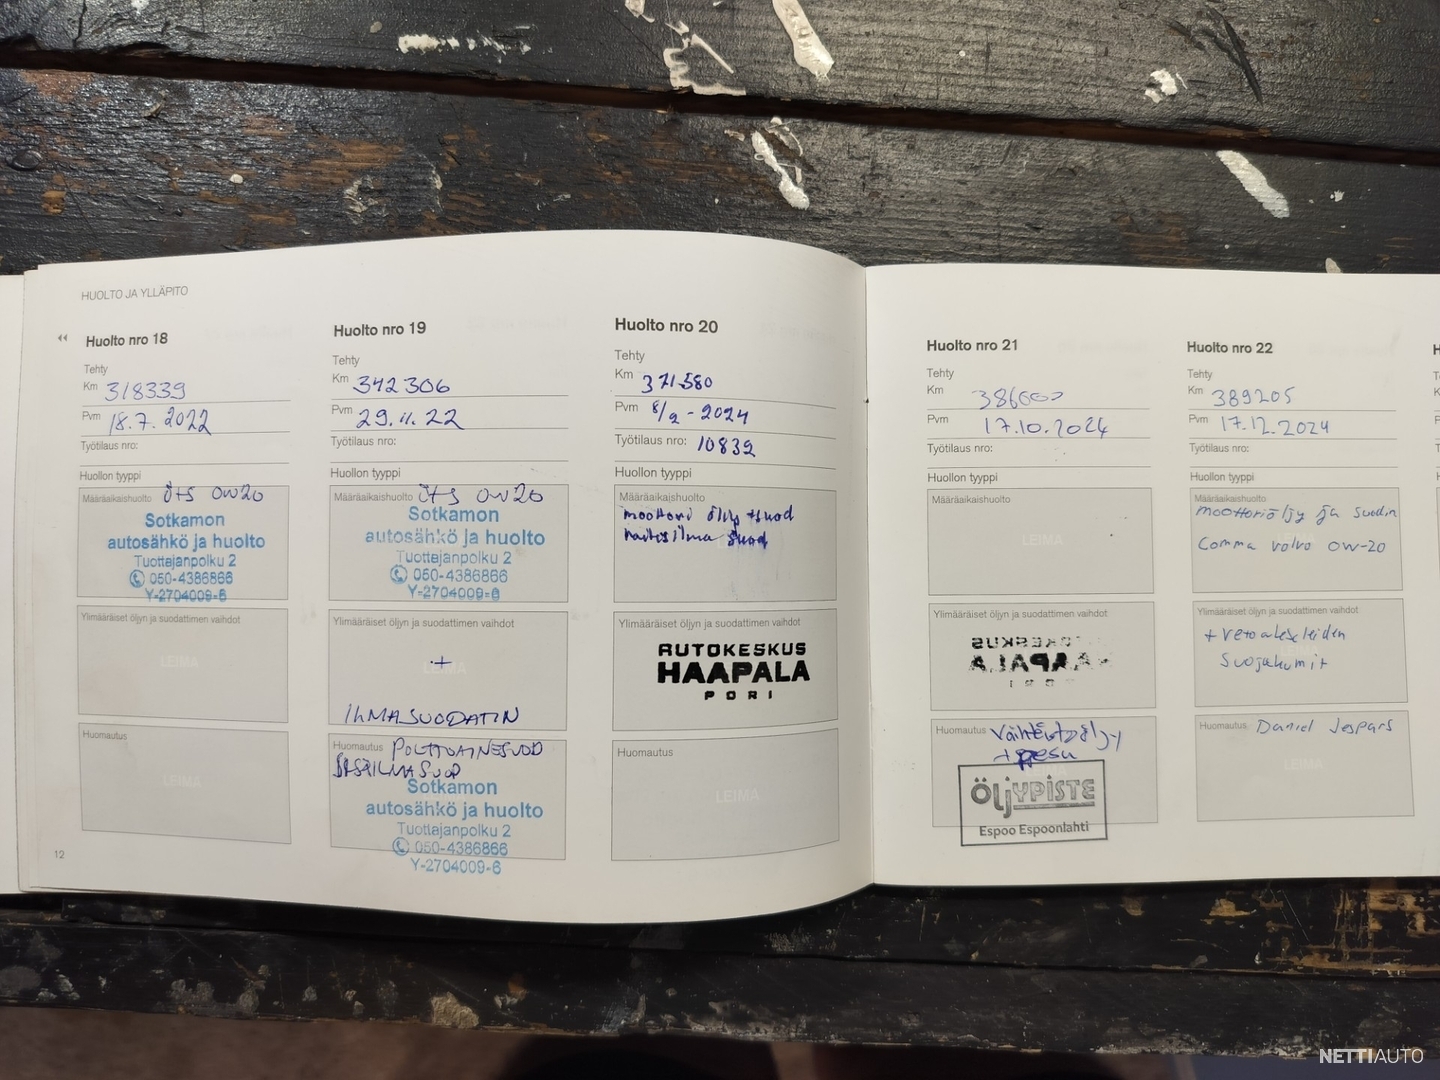 HUOLTO JA YLLÄPITO
Huolto nro 18
Tehty
Km 318339
Pvm 18.7.2022
Työtilaus nro:
Huollon tyyppi
Määräaikaishuolto öts 0W20
Sotkamon
autosähkö ja huolto
Tuottajanpolku 2
050-4386866
Y-2704009-6
Ylimääräiset öljyn ja suodattimen vaihdot
LEIMA
Huomautus
LEIMA
12
Huolto nro 19
Tehty
Km 342306
Pvm 29.11.22
Työtilaus nro:
Huollon tyyppi
Määräaikaishuolto öts 0W20
Sotkamon
autosähkö ja huolto
Tuottajanpolku 2
050-4386866
Y-2704009-6
Ylimääräiset öljyn ja suodattimen vaihdot
LEIMA
+
ILMASUODATIN
Huomautus POLTTOAINESUOD
Sotkamon
autosähkö ja huolto
Tuottajanpolku 2
050-4386866
Y-2704009-6
Huolto nro 20
Tehty
Km 371580
Pvm 8/2-2024
Työtilaus nro: 10832
Huollon tyyppi
Määräaikaishuolto
moottori öljy + suod
raitisilma suod
Ylimääräiset öljyn ja suodattimen vaihdot
AUTOKESKUS
HAAPALA
PORI
Huomautus
LEIMA
Huolto nro 21
Tehty
Km 386000
Pvm 17.10.2024
Työtilaus nro:
Huollon tyyppi
Määräaikaishuolto
LEIMA
Ylimääräiset öljyn ja suodattimen vaihdot
Huomautus Vaihteistoöljy
+ pesu
LEIMA
ÖljYPISTE
Espoo Espoonlahti
Huolto nro 22
Tehty
Km 389205
Pvm 17.12.2024
Työtilaus nro:
Huollon tyyppi
Määräaikaishuolto
moottoriöljy ja suodin
Comma volvo 0W-20
Ylimääräiset öljyn ja suodattimen vaihdot
+ vetoakseleiden
suojakumit
Huomautus Daniel Jespars
LEIMA
NETTIAUTO